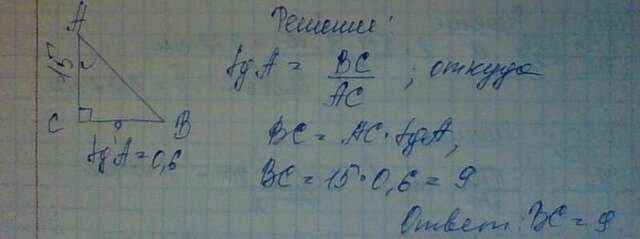 A
15
C
?
B
tgA=0,6
Решение:
tgA = BC/AC ; откуда
BC = AC·tgA,
BC = 15·0,6 = 9.
Ответ: BC = 9